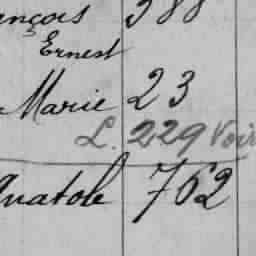 ançois 388
Ernest
Marie 23
L. 229 Voir
Anatole 762